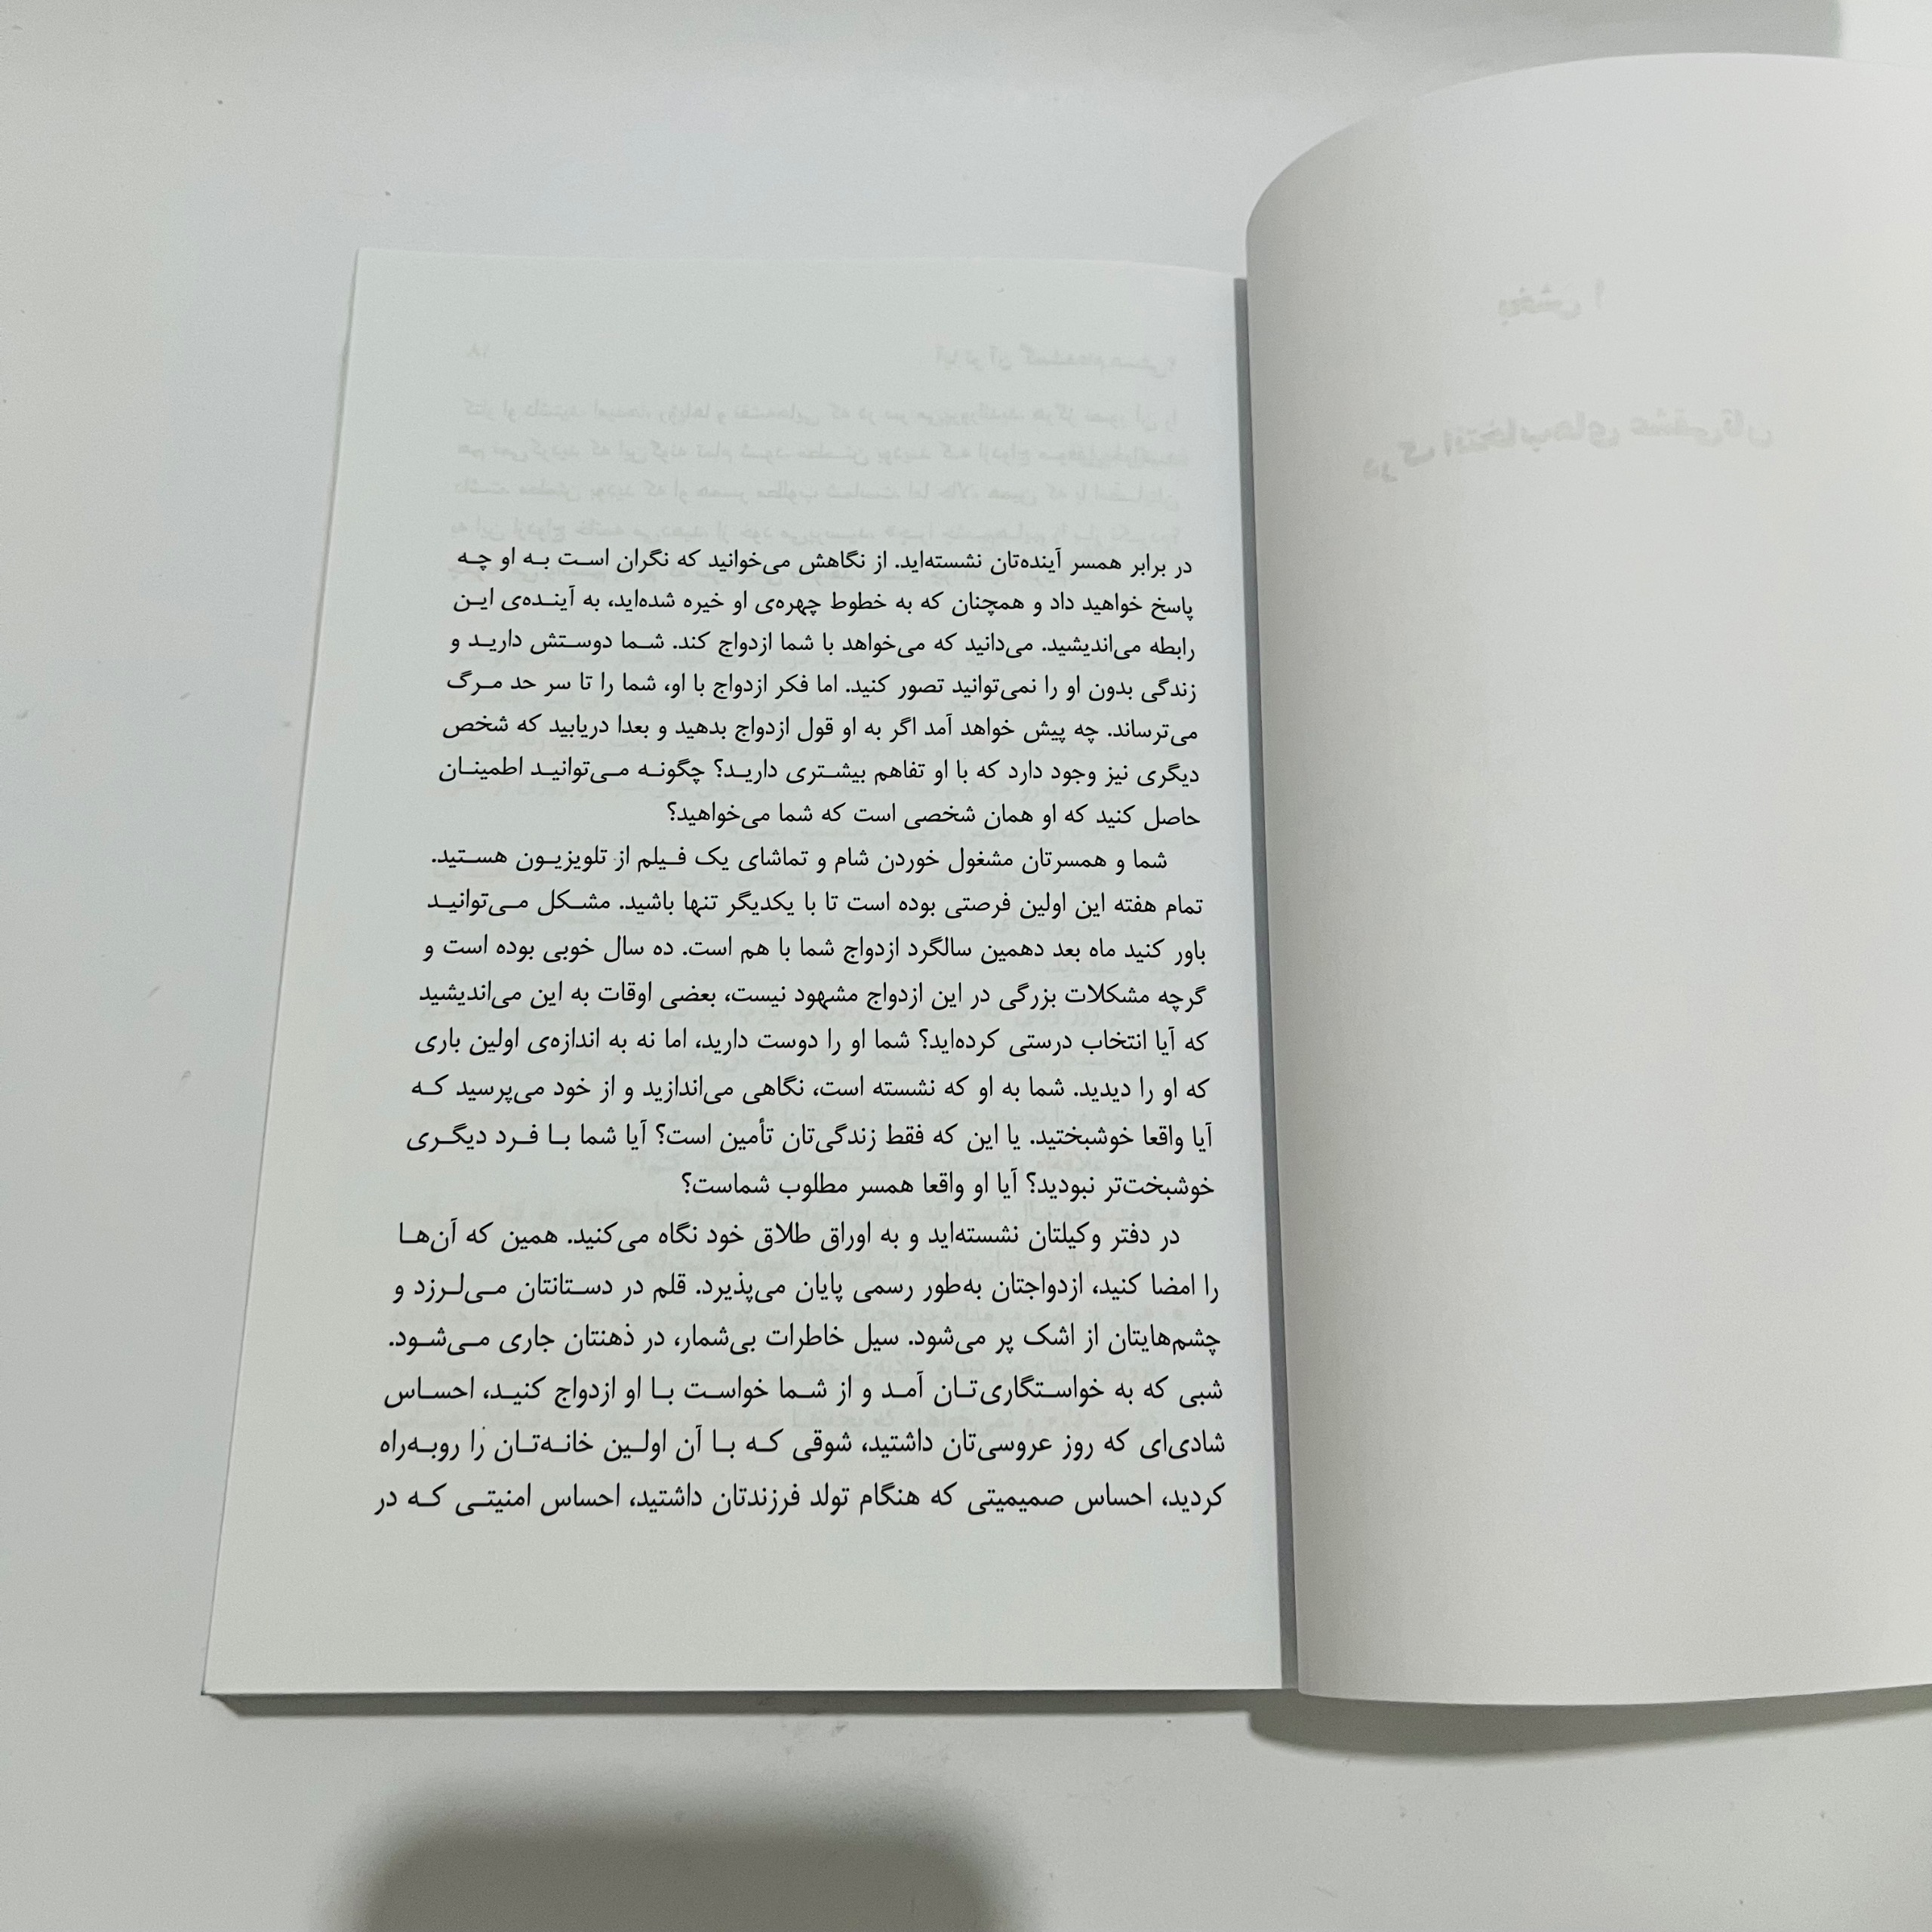 در برابر همسر آینده‌تان نشسته‌اید. از نگاهش می‌خوانید که نگران اسـت بـه او چـه
پاسخ خواهید داد و همچنان که به خطوط چهره‌ی او خیره شده‌اید، به آینـده‌ی ایـن
رابطه می‌اندیشید. می‌دانید که می‌خواهد با شما ازدواج کند. شـما دوسـتش داریـد و
زندگی بدون او را نمی‌توانید تصور کنید. اما فکر ازدواج با او، شما را تا سر حد مـرگ
می‌ترساند. چه پیش خواهد آمد اگر به او قول ازدواج بدهید و بعدا دریابید که شخص
دیگری نیز وجود دارد که با او تفاهم بیشـتری داریـد؟ چگونـه مـی‌توانیـد اطمینـان
حاصل کنید که او همان شخصی است که شما می‌خواهید؟
شما و همسرتان مشغول خوردن شام و تماشای یک فـیلم از تلویزیـون هسـتید.
تمام هفته این اولین فرصتی بوده است تا با یکدیگر تنها باشید. مشـکل مـی‌توانیـد
باور کنید ماه بعد دهمین سالگرد ازدواج شما با هم است. ده سال خوبی بوده است و
گرچه مشکلات بزرگی در این ازدواج مشهود نیست، بعضی اوقات به این می‌اندیشید
که آیا انتخاب درستی کرده‌اید؟ شما او را دوست دارید، اما نه به اندازه‌ی اولین باری
که او را دیدید. شما به او که نشسته است، نگاهی می‌اندازید و از خود می‌پرسید کـه
آیا واقعا خوشبختید. یا این که فقط زندگی‌تان تأمین است؟ آیا شما بـا فـرد دیگـری
خوشبخت‌تر نبودید؟ آیا او واقعا همسر مطلوب شماست؟
در دفتر وکیلتان نشسته‌اید و به اوراق طلاق خود نگاه می‌کنید. همین که آن‌هـا
را امضا کنید، ازدواجتان به‌طور رسمی پایان می‌پذیرد. قلم در دسـتانتان مـی‌لـرزد و
چشم‌هایتان از اشک پر می‌شود. سیل خاطرات بی‌شمار، در ذهنتان جاری مـی‌شـود.
شبی که به خواسـتگاری‌تـان آمـد و از شـما خواسـت بـا او ازدواج کنیـد، احسـاس
شادی‌ای که روز عروسی‌تان داشتید، شوقی کـه بـا آن اولـین خانـه‌تـان را روبـه‌راه
کردید، احساس صمیمیتی که هنگام تولد فرزندتان داشتید، احساس امنیتـی کـه در